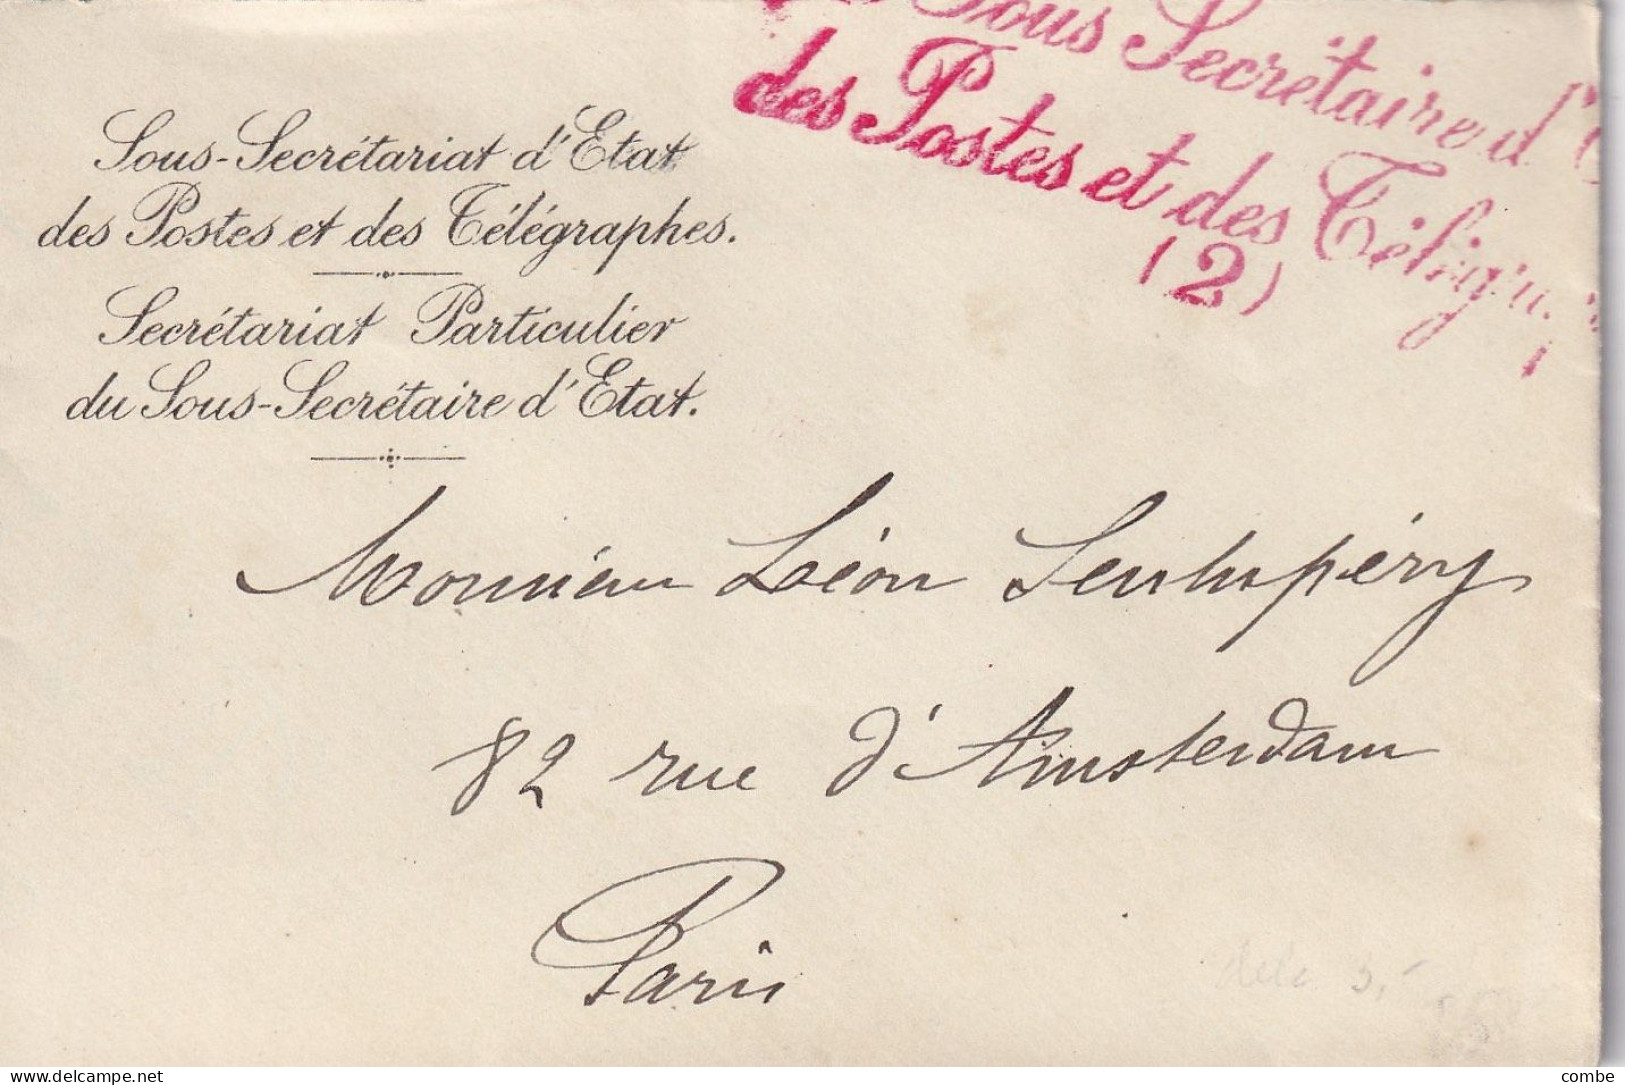 Sous Secrétaire d'
des Postes et des
(2)
Sous-Secrétariat d'Etat
des Postes et des Télégraphes.
Secrétariat Particulier
du Sous-Secrétaire d'Etat.
Monsieur Léon
82 rue d'Amsterdam
Paris
delc
combe